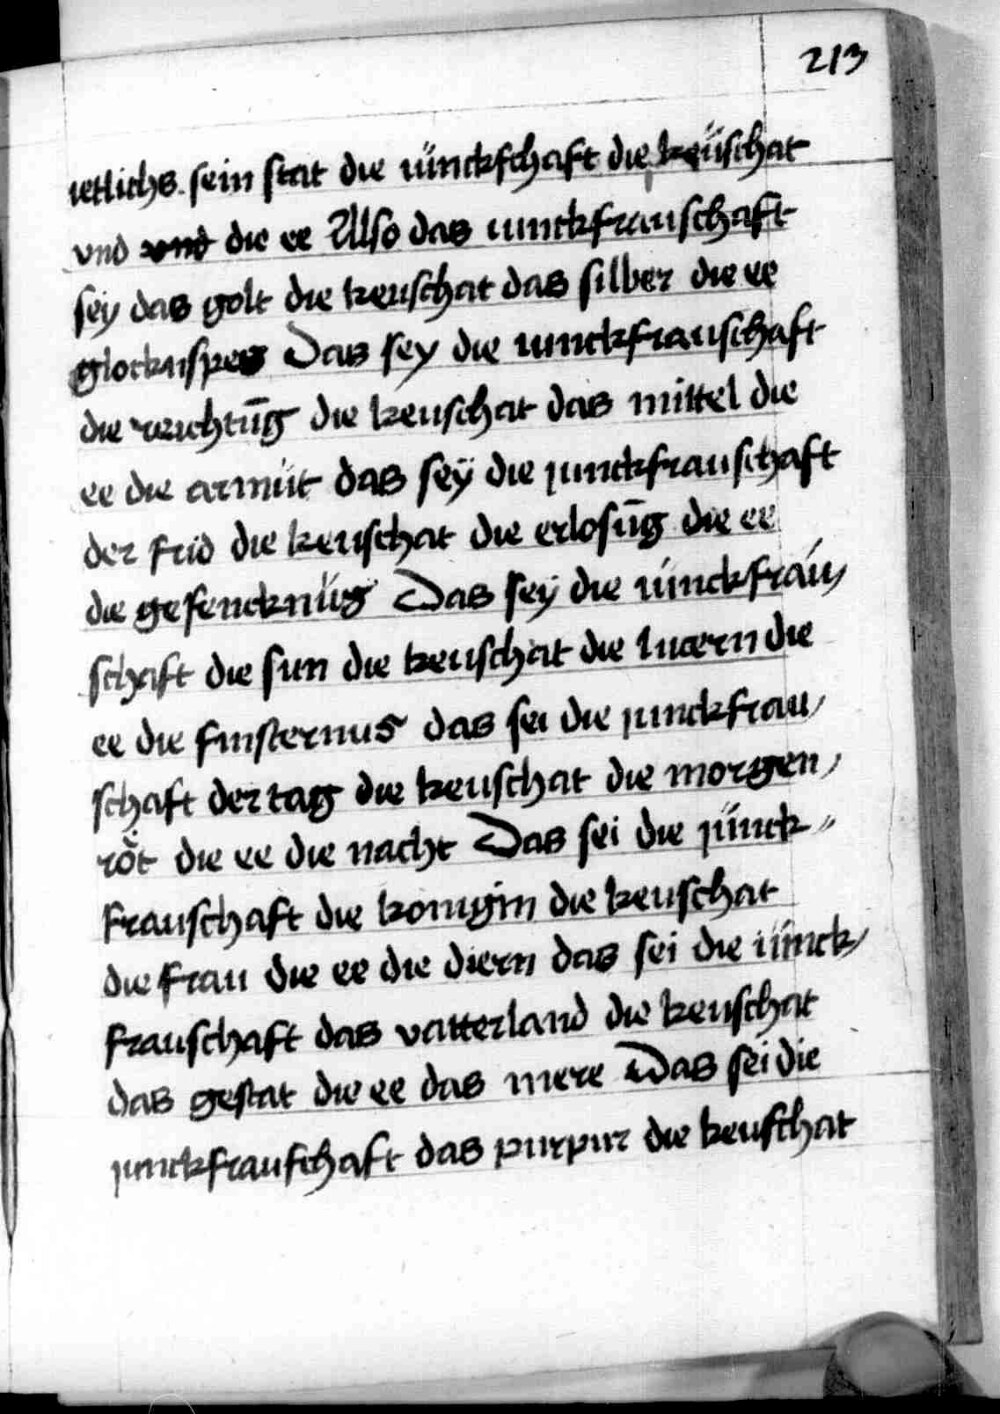 213
ietlichs sein stat die iunckschaft die keuschat
vnd vnd die ee Also das iunckfrauschaft
sey das golt die keuschat das silber die ee
glocknspeis Das sey die iunckfrauschaft
die reichtu̅g die keuschat das mittel die
ee die armüt das sey die junckfrauschaft
der frid die keuschat die erlosu̅g die ee
die gefencknüs Das sey die iunckfrau
schaft die sun die keuschat die lucern die
ee die finsternus das sei die junckfrau
schaft der tag die keuschat die morgen
röt die ee die nacht Das sei die junck
frauschaft die konigin die keuschat
die frau die ee die diern das sei die iunck
frauschaft das vatterland die keuschat
das gestat die ee das mere Das sei die
junckfrauschaft das purpur die keuschat